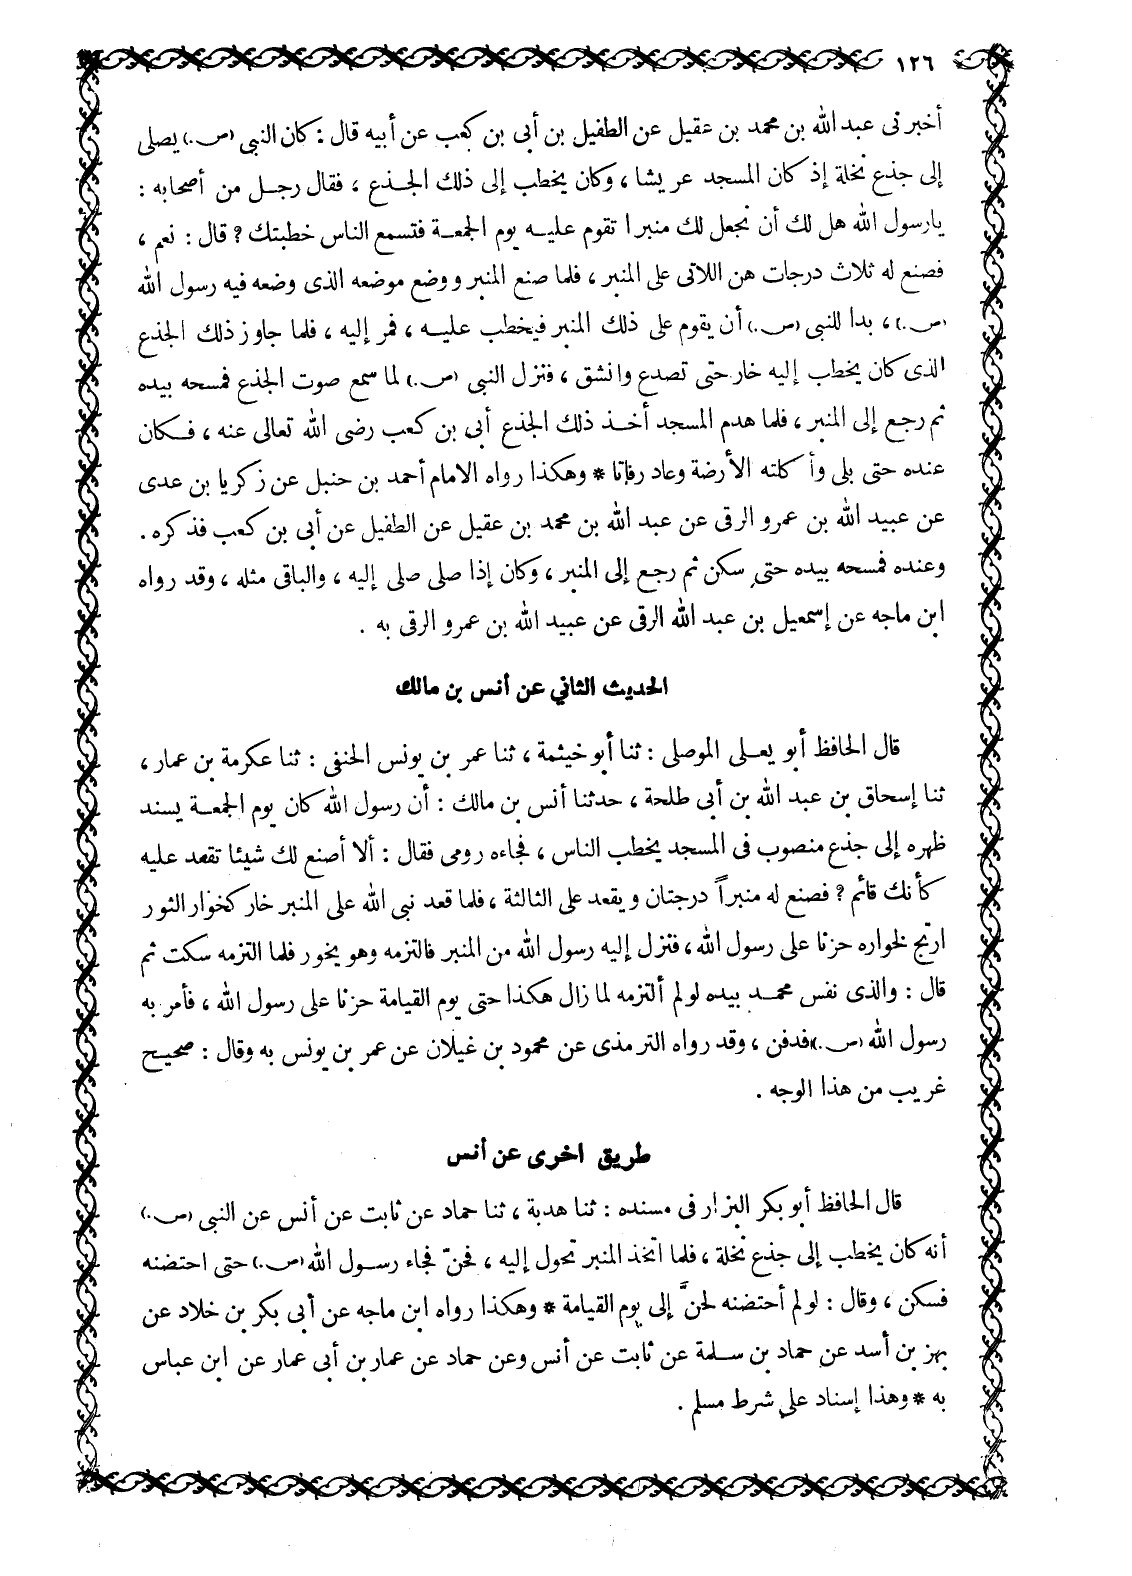 ١٢٦
أخبرنى عبد الله بن محمد بن عقيل عن الطفيل بن أبى بن كعب عن أبيه قال : كان النبى (ص.) يصلى
إلى جذع نخلة إذ كان المسجد عريشا ، وكان يخطب إلى ذلك الجذع ، فقال رجل من أصحابه :
يارسول الله هل لك أن نجعل لك منبرا تقوم عليه يوم الجمعة فتسمع الناس خطبتك ? قال : نعم ،
فصنع له ثلاث درجات هن اللاتى على المنبر ، فلما صنع المنبر ووضع موضعه الذى وضعه فيه رسول الله
(ص.) ، بدا للنبى (ص.) أن يقوم على ذلك المنبر فيخطب عليه ، فمر إليه ، فلما جاوز ذلك الجذع
الذى كان يخطب إليه خار حتى تصدع وانشق ، فنزل النبى (ص.) لما سمع صوت الجذع فمسحه بيده
ثم رجع إلى المنبر ، فلما هدم المسجد أخذ ذلك الجذع أبى بن كعب رضى الله تعالى عنه ، فكان
عنده حتى بلى وأكلته الأرضة وعاد رفاتا * وهكذا رواه الامام أحمد بن حنبل عن زكريا بن عدى
عن عبيد الله بن عمرو الرقى عن عبد الله بن محمد بن عقيل عن الطفيل عن أبى بن كعب فذكره .
وعنده فمسحه بيده حتى سكن ثم رجع إلى المنبر ، وكان إذا صلى صلى إليه ، والباقى مثله ، وقد رواه
ابن ماجه عن إسمعيل بن عبد الله الرقى عن عبيد الله بن عمرو الرقى به .
الحديث الثاني عن أنس بن مالك
قال الحافظ أبو يعلى الموصلى : ثنا أبو خيثمة ، ثنا عمر بن يونس الحنفى : ثنا عكرمة بن عمار ،
ثنا إسحاق بن عبد الله بن أبى طلحة ، حدثنا أنس بن مالك : أن رسول الله كان يوم الجمعة يسند
ظهره إلى جذع منصوب فى المسجد يخطب الناس ، فجاءه رومى فقال : ألا أصنع لك شيئا تقعد عليه
كأنك قائم ? فصنع له منبراً درجتان ويقعد على الثالثة ، فلما قعد نبى الله على المنبر خار كخوار الثور
ارتج لخواره حزنا على رسول الله ، فنزل إليه رسول الله من المنبر فالتزمه وهو يخور فلما التزمه سكت ثم
قال : والذى نفس محمد بيده لو لم ألتزمه لما زال هكذا حتى يوم القيامة حزنا على رسول الله ، فأمر به
رسول الله (ص.) فدفن ، وقد رواه الترمذى عن محمود بن غيلان عن عمر بن يونس به وقال : صحيح
غريب من هذا الوجه .
طريق اخرى عن أنس
قال الحافظ أبو بكر البزار فى مسنده : ثنا هدبة ، ثنا حماد عن ثابت عن أنس عن النبى (ص.)
أنه كان يخطب إلى جذع نخلة ، فلما اتخذ المنبر تحول إليه ، فحنّ فجاء رسول الله (ص.) حتى احتضنه
فسكن ، وقال : لو لم أحتضنه لحنَّ إلى يوم القيامة * وهكذا رواه ابن ماجه عن أبى بكر بن خلاد عن
بهز بن أسد عن حماد بن سلمة عن ثابت عن أنس وعن حماد عن عمار بن أبى عمار عن ابن عباس
به * وهذا إسناد على شرط مسلم .